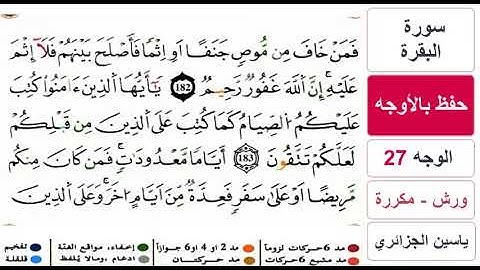 فَمَنْ خَافَ مِن مُّوصٖ جَنَفًا اَوِ اِثْمٗا فَأَصْلَحَ بَيْنَهُمْ فَلَآ إِثْمَ
عَلَيْهِۖ إِنَّ اَ۬للَّهَ غَفُورٞ رَّحِيمٞۖ 182 يَٰٓأَيُّهَا اَ۬لذِينَ ءَامَنُواْ كُتِبَ
عَلَيْكُمُ اُ۬لصِّيَامُ كَمَا كُتِبَ عَلَى اَ۬لذِينَ مِن قَبْلِكُمْ
لَعَلَّكُمْ تَتَّقُونَ 183 أَيَّاماٗ مَّعْدُودَٰتٖۖ فَمَن كَانَ مِنكُم
مَّرِيضًا اَوْ عَلَىٰ سَفَرٖ فَعِدَّةٞ مِّنَ اَيَّامٍ اُخَرَۖ وَعَلَى اَ۬لذِينَ
سورة
البقرة
حفظ بالأوجه
الوجه 27
ورش - مكررة
ياسين الجزائري
مد 6 حركات لزوماً
مد 2 او 4 او 6 جوازاً
إخفاء، مواقع الغنّة
تفخيم
مد مشبع 6 حركات
مد حركتان
ادغام، ومالا يُلفظ
قلقلة